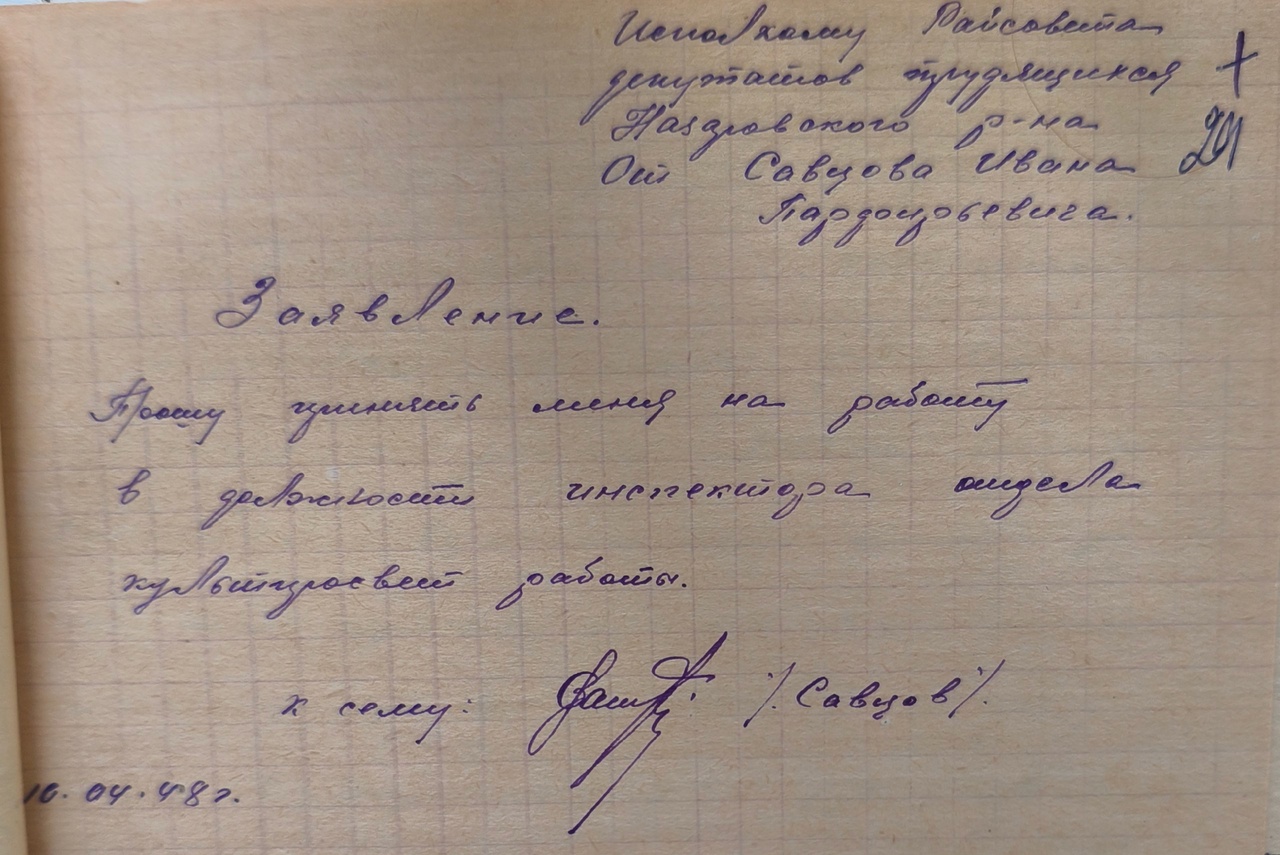 Исполкому Райсовета
депутатов трудящихся
Назаровского р-на
От Савцова Ивана
Заявление.
Прошу принять меня на работу
в должности инспектора отдела
культпросвет работы.
к сему: /Савцов/.
10.04.48г.